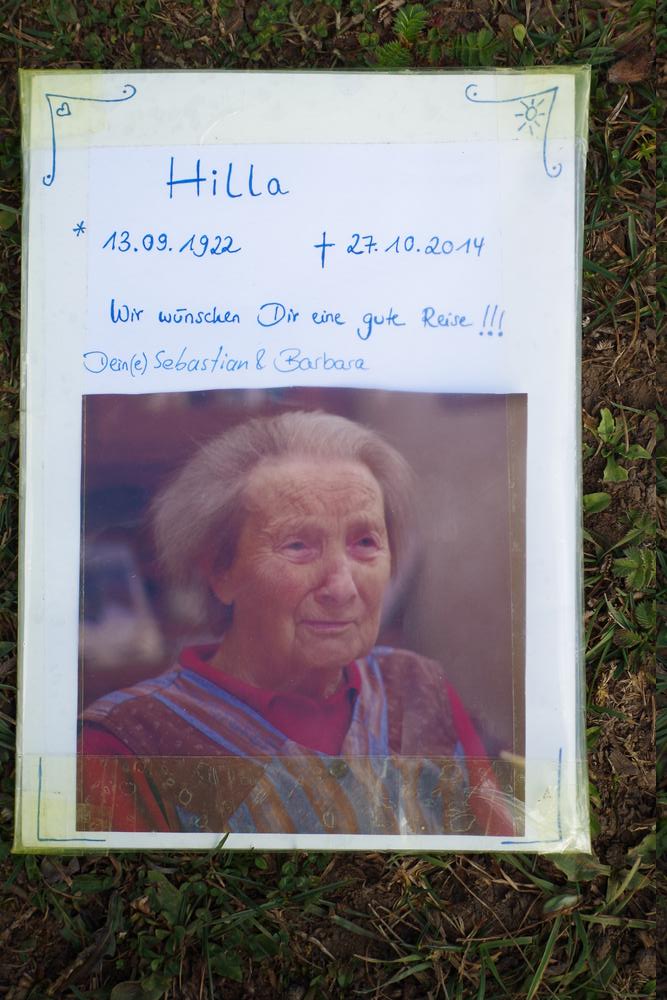 Hilla
* 13.09.1922 † 27.10.2014
Wir wünschen Dir eine gute Reise !!!
Dein(e) Sebastian & Barbara